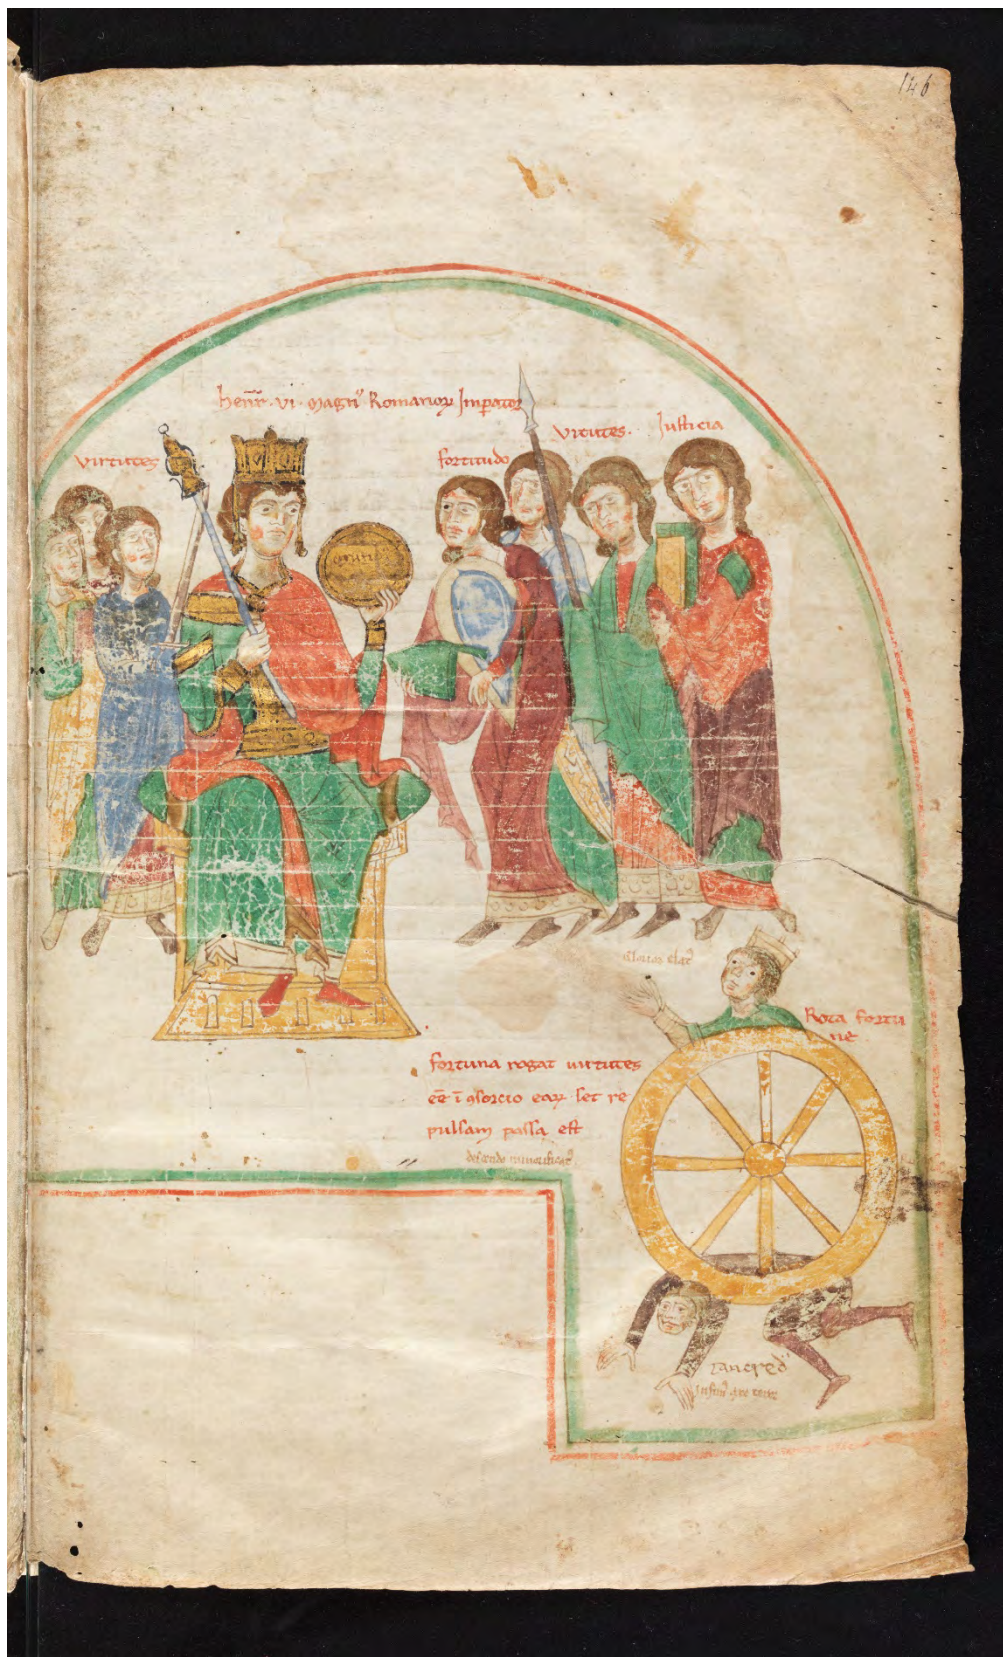 146
henr̄ · vi · magn⁹ Romanoꝝ Imꝑatoꝛ
virtutes
fortitudo
virtutes.
Iusticia
Rota fortu
ne
fortuna rogat virtutes
eē ī ꝯsorcio eaꝝ set re
pulsam passa est
tancred⁹